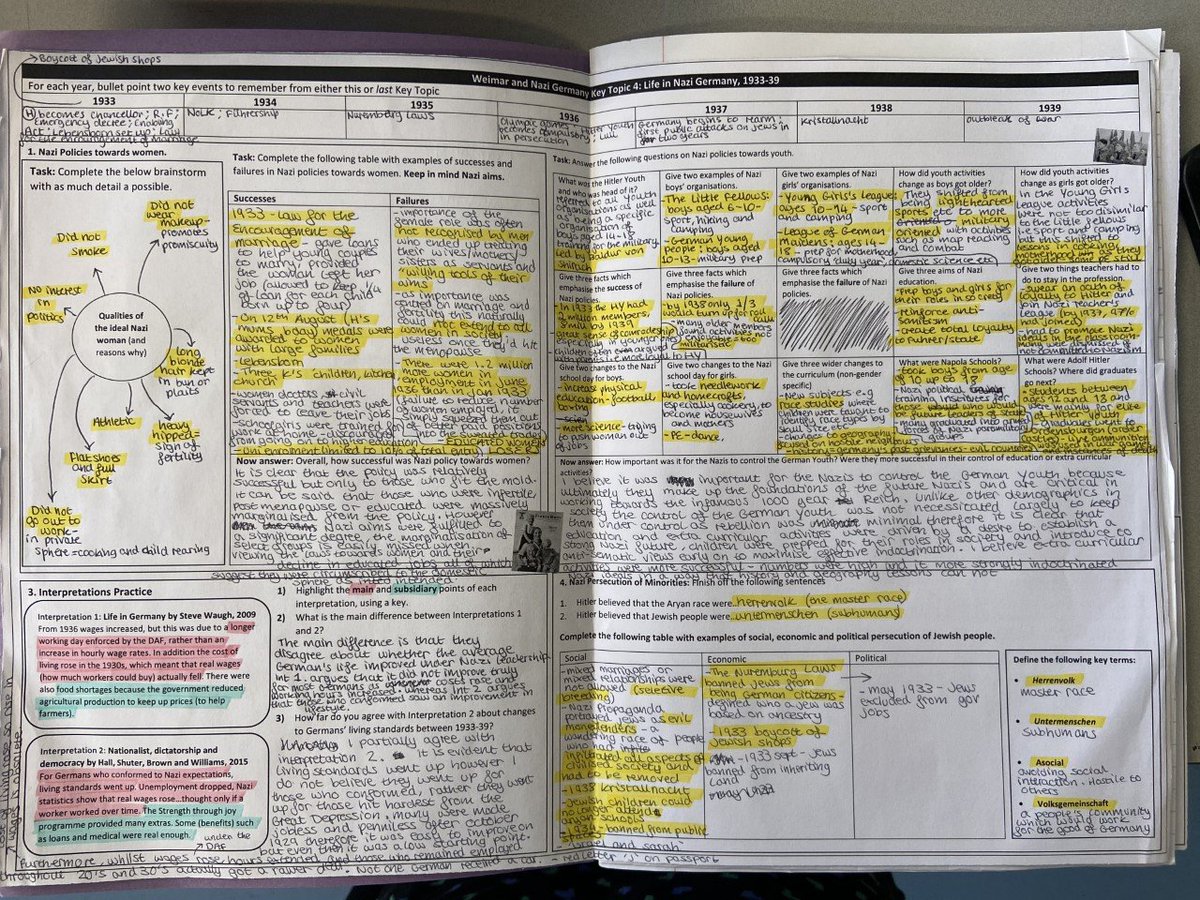 → Boycott of Jewish shops
Weimar and Nazi Germany Key Topic 4: Life in Nazi Germany, 1933-39
For each year, bullet point two key events to remember from either this or last Key Topic
1933
1934
1935
1936
1937
1938
1939
(H) becomes chancellor; R.F;
Emergency decree; Enabling
Act; Lebensborn set up; Law
for the encouragement of marriage
NOLK; Führership
Nuremburg laws
Olympic games; Hitler Youth
becomes compulsory; Lull
in persecution
Germany begins to rearm;
first public attacks on Jews in
for two years
Kristallnacht
outbreak of war
1. Nazi Policies towards women.
Task: Complete the below brainstorm
with as much detail a possible.
Did not
wear
makeup -
promotes
promiscuity
Did not
smoke
No interest
in
politics
Qualities of
the ideal Nazi
woman (and
reasons why)
long
blonde
hair kept
in bun or
plaits
Athletic
heavy
hipped -
sign of
fertility
Flat shoes
and full
skirt
Did not
go out to
work
in private
sphere = cooking and child rearing
Task: Complete the following table with examples of successes and
failures in Nazi policies towards women. Keep in mind Nazi aims.
Successes
1933 - law for the
Encouragement of
marriage - gave loans
to help young couples
to marry, provided
the woman left her
job (allowed to keep 1/4
of loan for each child
born up to four)
- On 12th August (H's
mums bday) medals were
awarded to women
with large families
- Three K's children, kitchen
church
- women doctors, civil
servants and teachers were
forced to leave their jobs
- schoolgirls were trained for
work at home - discouraged
from going on to higher education
- uni enrolment limited to 10% of total entry
Failures
- importance of the
female role was often
not recognised by men
who ended up treating
their wives/mothers/
sisters as servants and
"willing tools of their
aims"
- as importance was
centred on marriage and
fertility this naturally
could not extend to all
women in society
useless once they'd hit
the menopause
- There were 1.2 million
more women in
employment in June
- failure to reduce number
of women employed, it
simply squeezed them out
Now answer: Overall, how successful was Nazi policy towards women?
It is clear that the policy was relatively
successful but only to those who fit the mold.
it can be said that those who were infertile,
post menopause or educated were massively
marginalised from the policy. However
Nazi aims were fulfilled to
a significant degree, the marginalisation of
select groups is easily missed when
viewing the laws towards women and their
decline in educated jobs all of which
suggest they were inscripted to the domestic
sphere as hitler intended
Task: Answer the following questions on Nazi policies towards youth.
What was the Hitler Youth
and who was head of it?
referred to all youth
organisations as well
as being a specific
organisation of
boys aged 14-18
training for the military.
led by Baldur von
Shirach
Give two examples of Nazi
boys' organisations.
- The Little Fellows:
boys aged 6-10-
sport, hiking and
camping
- German Young
People: boys aged
10-13 - military prep
Give two examples of Nazi
girls' organisations.
- Young Girls's league
ages 10-14 - sport
and camping
- League of German
Maidens: ages 14-
18 - prep for motherhood
compulsory 'duty year', domestic science etc
How did youth activities
change as boys got older?
They shifted from
being lighthearted
sports etc to more
oriented to military
oriented with activities
such as map reading
and combat
How did youth activities
change as girls got older?
In the Young Girls
league activities
were not too dissimilar
to the Little Fellows
i.e sport and camping
but this shifted to
lessons in cooking,
Give three facts which
emphasise the success of
Nazi policies.
- In 1933 the HY had
2 million members,
8 mil by 1939
- great sense of comradeship
especially in younger
Give three facts which
emphasise the failure of
Nazi policies.
by 1938 only 1/3
would turn up for roll
- many older members
found activities not
enjoyable = too
militaristic
Give three facts which
emphasise the failure of Nazi
policies.
Give three aims of Nazi
education.
- Prep boys and girls for
their roles in society
- reinforce anti-
semitism
- create total loyalty
to fuhrer/state
Give two things teachers had
to do to stay in the profession.
- swear an oath of
loyalty to Hitler and
join Nazi teachers
league (by 1937, 97%
had joined)
- had to promote Nazi
ideals in the classroom
many were dismissed if
not committed to nazism
Give two changes to the Nazi
school day for boys.
- increase physical
education - football
boxing
- more science - trying
to push women out of
jobs
Give two changes to the Nazi
school day for girls.
- took needlework
and homecrafts,
especially cookery, to
become housewives
and mothers
- PE - dance,
Give three wider changes to
the curriculum (non-gender
specific)
- New subjects e.g
race studies where
children were taught to
identify race types by
skull size etc
- changes to geography
focused on hostile neighbours
- history = germany's past grievances - evil
What were Napola Schools?
- took boys from age
of 10 up to 18
- Nazi political training
institutes for
those who would
be future leaders of state
- many graduated into armed
forces or Nazi paramilitary
groups
What were Adolf Hitler
Schools? Where did graduates
go next?
- students between
12/13 and 18
- were mainly for elite
of Hitler Youth
Now answer: How important was it for the Nazis to control the German Youth? Were they more successful in their control of education or extra curricular
activities?
I believe it was important for the Nazis to control the German youth because
ultimately they make up the foundations of the future Nazi's and are critical in
working towards the infamous 1000 year Reith. Unlike other demographics in
society the control of the German youth was not necessitated largely to keep
them under control as rebellion was minimal therefore it is clear that
education and extra curricular activities were driven by a desire to establish a
strong Nazi future, children were prepared for their roles in society and introduce to
anti-semetic views early on to maximise effective indoctrination. I believe extra curricular
activities were more successful - numbers were high and it more strongly indoctrinated
Nazi ideals in a way that history and geography lessons can not
3. Interpretations Practice
Interpretation 1: Life in Germany by Steve Waugh, 2009
From 1936 wages increased, but this was due to a longer
working day enforced by the DAF, rather than an
increase in hourly wage rates. In addition the cost of
living rose in the 1930s, which meant that real wages
(how much workers could buy) actually fell. There were
also food shortages because the government reduced
agricultural production to keep up prices (to help
farmers).
Interpretation 2: Nationalist, dictatorship and
democracy by Hall, Shuter, Brown and Williams, 2015
For Germans who conformed to Nazi expectations,
living standards went up. Unemployment dropped, Nazi
statistics show that real wages rose...thought only if a
worker worked over time. The Strength through joy
programme provided many extras. Some (benefits) such
as loans and medical were real enough.
under the
DAF
1) Highlight the main and subsidiary points of each
interpretation, using a key.
2) What is the main difference between Interpretations 1
and 2?
The main difference is that they
disagree about whether the average
German's life improved under Nazi leadership
Int 1. argues that it did not improve truly
for most germans as costs rose and
working hours increased, whereas Int 2 argues
that those who conformed saw an improvement in
lifestyle.
3) How far do you agree with Interpretation 2 about changes
to Germans' living standards between 1933-39?
I partially agree with
interpretation 2. it is evident that
living standards went up however I
do not believe they went up for
those who conformed, rather they went
up for those hit hardest from the
Great Depression. many were made
jobless and penniless after october
1929 therefore it was easy to improve on
but even then it was a low starting point.
Furthermore, whilst wages rose hours extended, and those who remained employed
throughout 20's and 30's actually got a rawer deal. Not one German recieved a car.
4. Nazi Persecution of Minorities: Finish off the following sentences
1. Hitler believed that the Aryan race were herrenvolk (the master race)
2. Hitler believed that Jewish people were untermenschen (subhumans)
Complete the following table with examples of social, economic and political persecution of Jewish people.
Social
- mixed marriages or
mixed relationships were
not allowed (selective
breeding)
- Nazi Propaganda
portrayed Jews as evil
moneylenders - a
wandering race of people
who had
infiltrated all aspects of
civilised society and
had to be removed
- 1938 kristallnacht
- Jewish children could
not attend
Aryan schools
banned from public
"Israel and Sarah"
- red letter 'J' on passport
Economic
- The Nuremburg Laws
banned Jews from
being German citizens -
defined who a Jew was
based on ancestry
- 1933 boycott of
Jewish shops
- 1933 sept - Jews
banned from inheriting
land
Political
- may 1933 - Jews
excluded from gov
jobs
Define the following key terms:
• Herrenvolk
master race
• Untermenschen
Subhumans
• Asocial
avoiding social
interaction. hostile to
others
• Volksgemeinschaft
a people's community
which would work
for the good of Germany